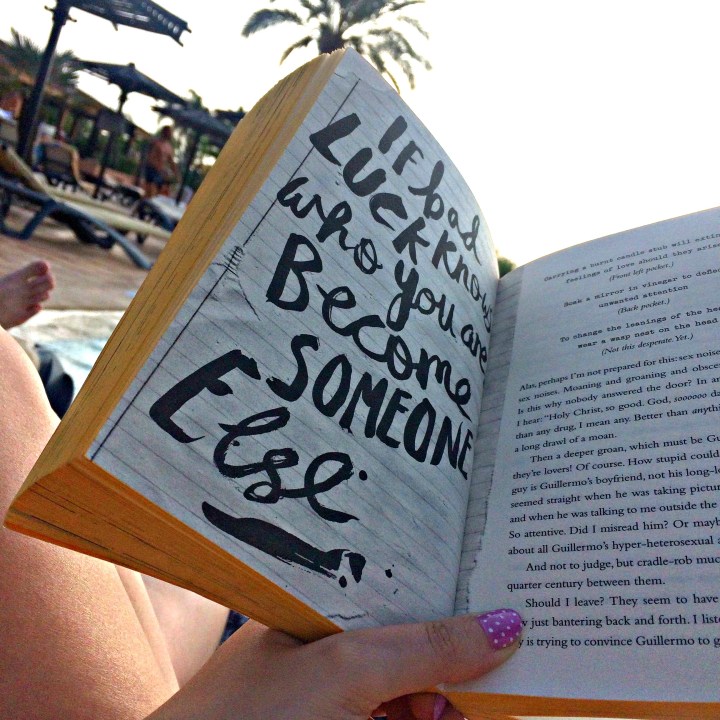 IF bad
LUCK Knows
who you are
Become
SOMEONE
Else
Carrying a burnt candle stub will
feelings of love should they
(Front left pocket.)
Soak a mirror in vinegar to
unwanted attention
(Back pocket.)
To change the leanings of the
wear a wasp nest on the head
(Not this desperate. Yet.)
Alas, perhaps I'm not prepared for this: sex
sex noises. Moaning and groaning and
Is this why nobody answered the door? In
I hear: "Holy Christ, so good. God, sooooo
than any drug, I mean any. Better than
a long drawl of a moan.
Then a deeper groan, which must be
they're lovers! Of course. How stupid could
guy is Guillermo's boyfriend, not his
seemed straight when he was taking
and when he was talking to me outside the
So attentive. Did I misread him? Or
about all Guillermo's hyper-heterosexual
And not to judge, but cradle-rob
quarter century between them.
Should I leave? They seem to have
just bantering back and forth. I
is trying to convince Guillermo to